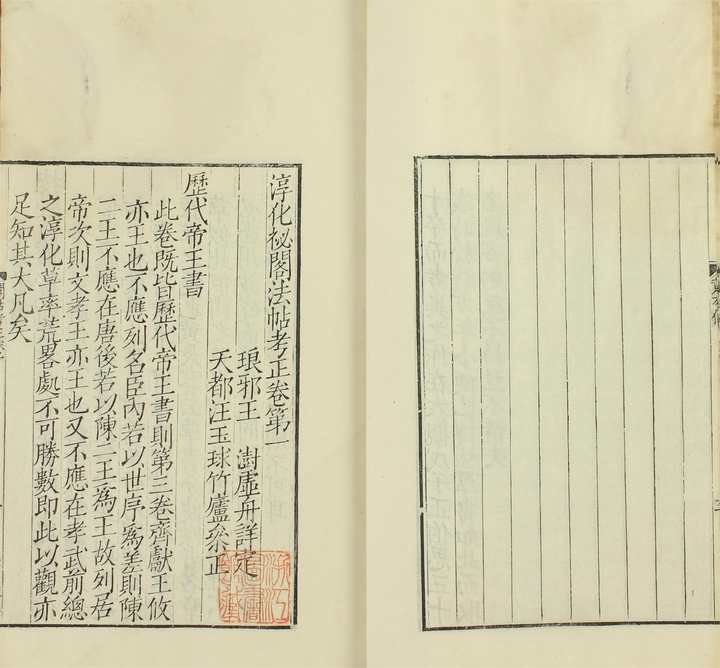 淳化祕閣法帖考正卷第一
琅邪王　澍虛舟詳定
天都汪玉球竹廬叅正
歷代帝王書
此卷既皆歷代帝王書則第三卷齊獻王攸
亦王也不應列名臣內若以世序爲差則陳
二王不應在唐後若以陳二王爲王故列居
帝次則文孝王亦王也又不應在孝武前總
之淳化草率荒畧處不可勝數即此以觀亦
足知其大凡矣